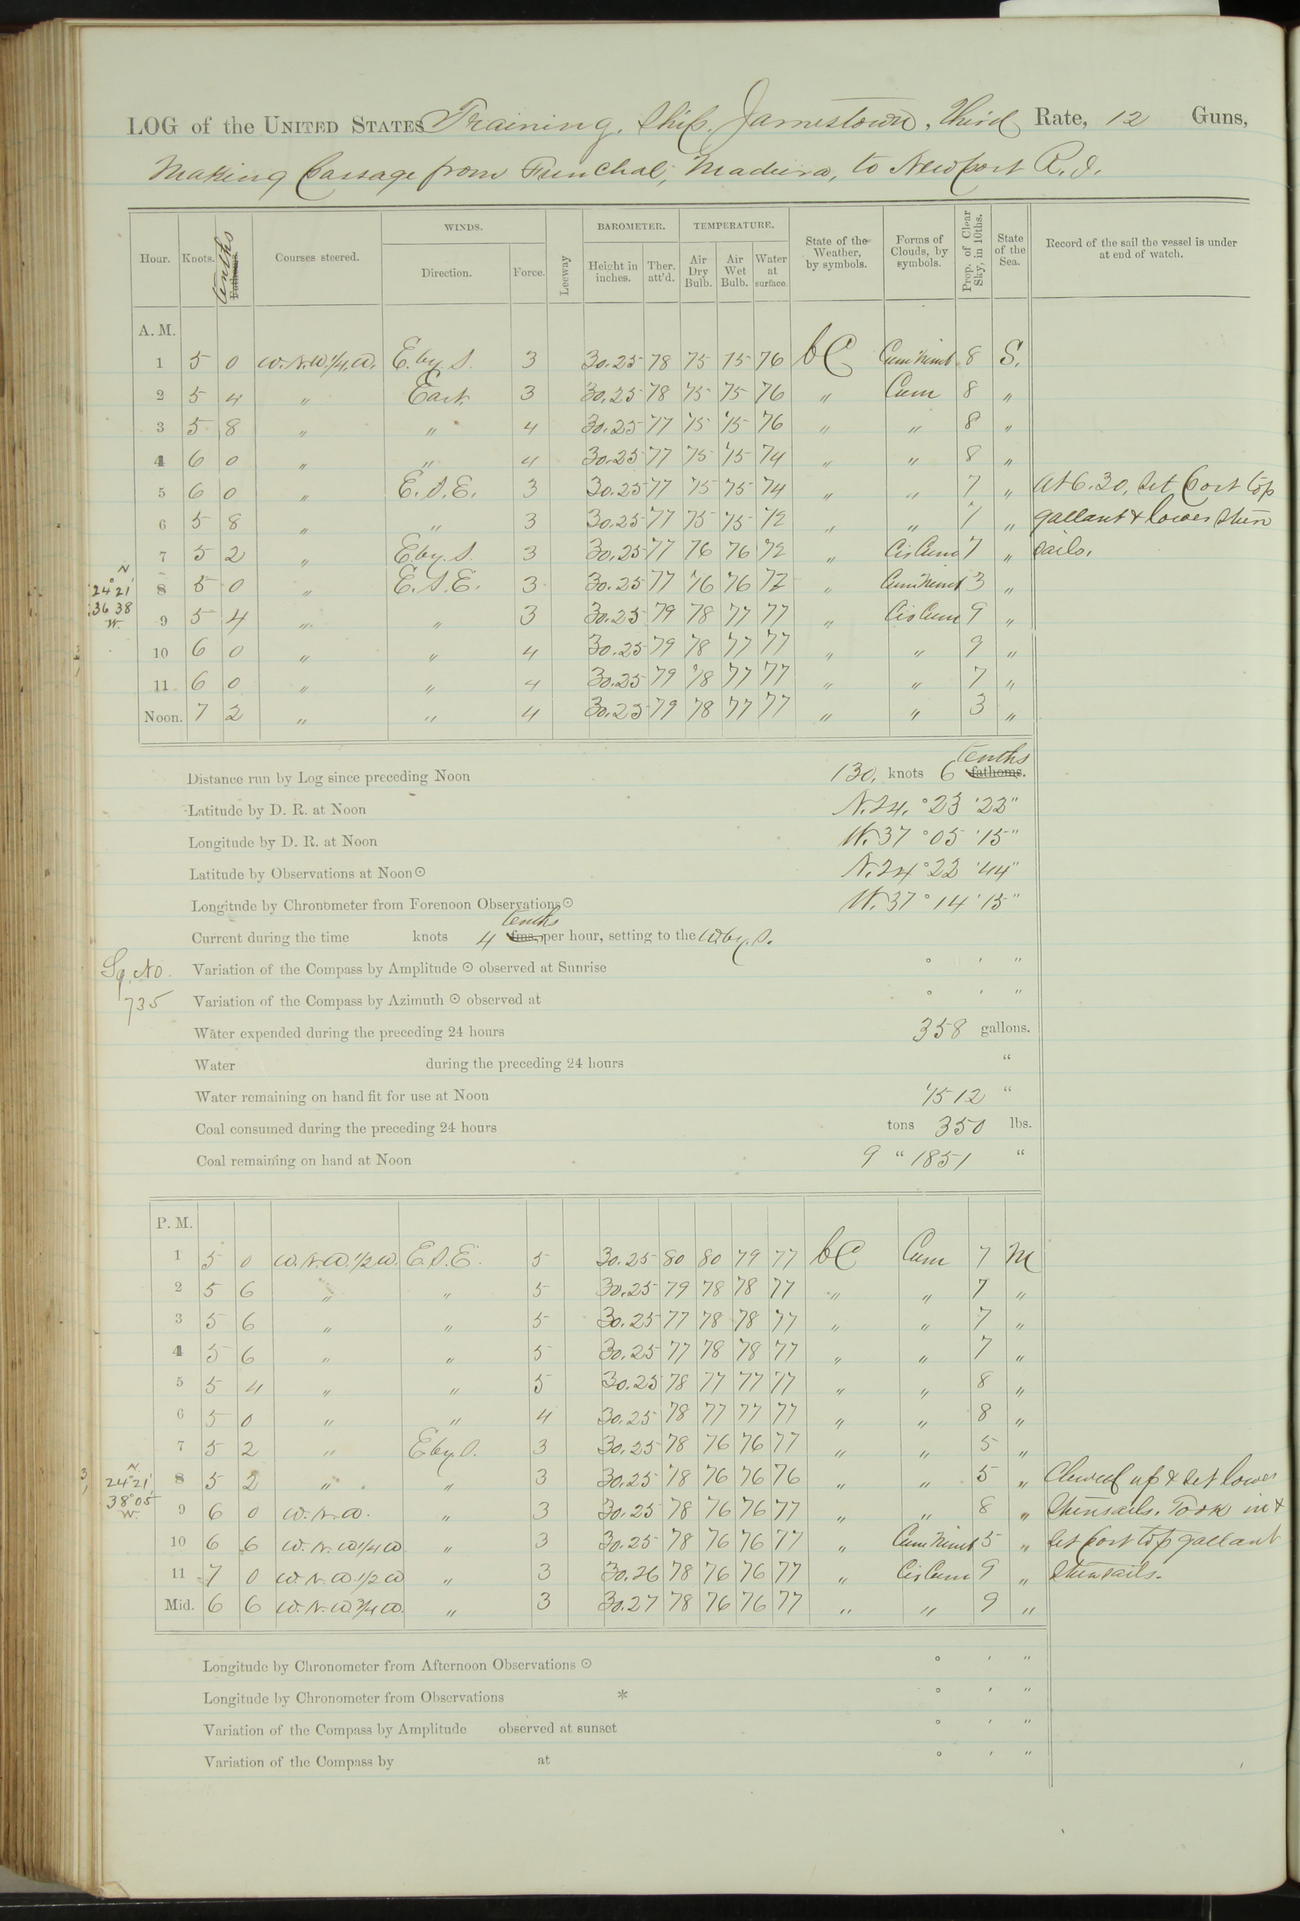 LOG of the UNITED STATES Training Ship Jamestown, Third Rate, 12 Guns,
Making Passage from Funchal, Madeira, to Newport R.I.
Hour. Knots. Fathoms. tenths Courses steered. WINDS. Direction. Force. Leeway BAROMETER. Height in inches. Ther. att'd. TEMPERATURE. Air Dry Bulb. Air Wet Bulb. Water at surface. State of the Weather, by symbols. Forms of Clouds, by symbols. Prop. of Clear Sky, in 10ths. State of the Sea. Record of the sail the vessel is under at end of watch.
A. M.
1 5 0 W.N.W.1/4W. E. by S. 3 30.25 78 75 75 76 bC Cum Nimb 8 S.
2 5 4 " East. 3 30.25 78 75 75 76 " Cum 8 "
3 5 8 " " 4 30.25 77 75 75 76 " " 8 "
4 6 0 " " 4 30.25 77 75 75 74 " " 8 "
5 6 0 " E.S.E. 3 30.25 77 75 75 74 " " 7 " At 6.30, set Port top
6 5 8 " " 3 30.25 77 75 75 72 " " 7 " gallant & lower stun
7 5 2 " E by S. 3 30.25 77 76 76 72 " Cis Cum 7 " sails.
N
24° 21'
36 38
W.
8 5 0 " E.S.E. 3 30.25 77 76 76 72 " Cum Nimb 3 "
9 5 4 " " 3 30.25 79 78 77 77 " Cis Cum 9 "
10 6 0 " " 4 30.25 79 78 77 77 " " 9 "
11 6 0 " " 4 30.25 79 78 77 77 " " 7 "
Noon. 7 2 " " 4 30.25 79 78 77 77 " " 3 "
Distance run by Log since preceding Noon 130, knots 6 fathoms. tenths
Latitude by D. R. at Noon N. 24.° 23 ' 22 "
Longitude by D. R. at Noon W. 37 ° 05 ' 15 "
Latitude by Observations at Noon ☉ N. 24 ° 22 ' 44 "
Longitude by Chronometer from Forenoon Observations ☉ W. 37 ° 14 ' 15 "
Current during the time knots 4 fms. tenths per hour, setting to the W by S.
Sq. No.
735
Variation of the Compass by Amplitude ☉ observed at Sunrise ° ' "
Variation of the Compass by Azimuth ☉ observed at ° ' "
Water expended during the preceding 24 hours 358 gallons.
Water during the preceding 24 hours "
Water remaining on hand fit for use at Noon 1512 "
Coal consumed during the preceding 24 hours tons 350 lbs.
Coal remaining on hand at Noon 9 " 1851 "
P. M.
1 5 0 W.N.W.1/2W. E.S.E. 5 30.25 80 80 79 77 bC Cum 7 M
2 5 6 " " 5 30.25 79 78 78 77 " " 7 "
3 5 6 " " 5 30.25 77 78 78 77 " " 7 "
4 5 6 " " 5 30.25 77 78 78 77 " " 7 "
5 5 4 " " 5 30.25 78 77 77 77 " " 8 "
6 5 0 " " 4 30.25 78 77 77 77 " " 8 "
7 5 2 " E by S. 3 30.25 78 76 76 77 " " 5 "
N
24° 21'
38° 05'
W.
8 5 2 " " 3 30.25 78 76 76 76 " " 5 " Clewed up & set lower
9 6 0 W.N.W. " 3 30.25 78 76 76 77 " " 8 " stunsails. Took in &
10 6 6 W.N.W 1/4 W " 3 30.25 78 76 76 77 " Cum Nimb 5 " set Port top gallant
11 7 0 W.N.W 1/2 W " 3 30.26 78 76 76 77 " Cis Cum 9 " stunsails.
Mid. 6 6 W.N.W 3/4 W. " 3 30.27 78 76 76 77 " " 9 "
Longitude by Chronometer from Afternoon Observations ☉ ° ' "
Longitude by Chronometer from Observations * ° ' "
Variation of the Compass by Amplitude observed at sunset ° ' "
Variation of the Compass by at ° ' "